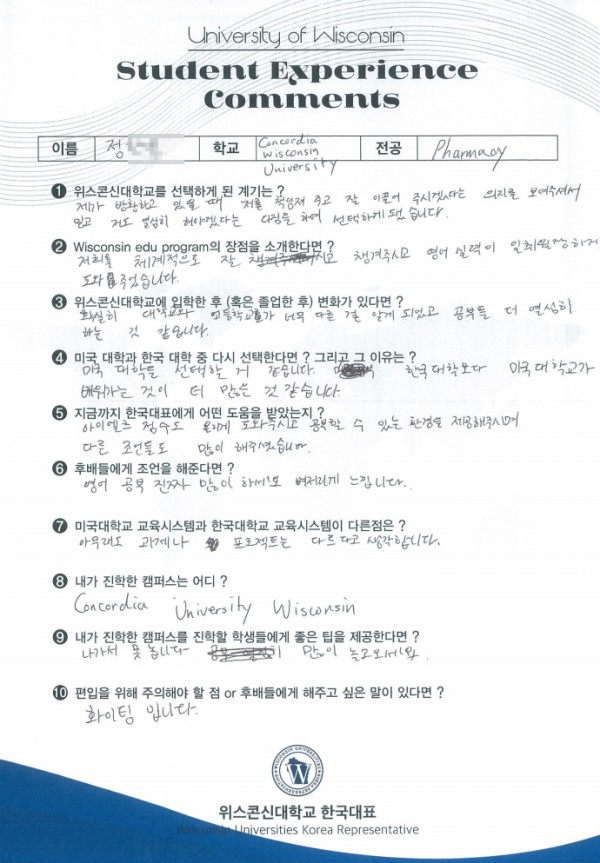 University of Wisconsin
Student Experience
Comments
이름 정 학교 Concordia Wisconsin University 전공 Pharmacy
1 위스콘신대학교를 선택하게 된 계기는 ?
제가 방황하고 있을 때 저를 책임져 주고 잘 이끌어 주시겠다는 의지를 보여주셔서
믿고 저도 열심히 해야겠다는 다짐을 하여 선택하게 됐습니다.
2 Wisconsin edu program의 장점을 소개한다면 ?
저희를 체계적으로 잘 챙겨주시고 영어 실력이 일취월장하게
도와주었습니다.
3 위스콘신대학교에 입학한 후 (혹은 졸업한 후) 변화가 있다면 ?
확실히 대학교와 고등학교가 너무 다른 걸 알게 되었고 공부를 더 열심히
하는 것 같습니다.
4 미국 대학과 한국 대학 중 다시 선택한다면 ? 그리고 그 이유는 ?
미국 대학을 선택할 거 같습니다. 한국 대학보다 미국 대학교가
배워가는 것이 더 많은 것 같습니다.
5 지금까지 한국대표에게 어떤 도움을 받았는지 ?
아이엘츠 점수도 도와주시고 공부할 수 있는 환경을 제공해주시며
다른 조언들도 많이 해주셨습니다.
6 후배들에게 조언을 해준다면 ?
영어 공부 진짜 많이 하세요 뼈저리게 느낍니다.
7 미국대학교 교육시스템과 한국대학교 교육시스템이 다른점은 ?
아무래도 과제나 프로젝트는 다르다고 생각합니다.
8 내가 진학한 캠퍼스는 어디 ?
Concordia University Wisconsin
9 내가 진학한 캠퍼스를 진학할 학생들에게 좋은 팁을 제공한다면 ?
나가서 못 놉니다 많이 놀고오세요.
10 편입을 위해 주의해야 할 점 or 후배들에게 해주고 싶은 말이 있다면 ?
화이팅 입니다.
W
위스콘신대학교 한국대표
Wisconsin Universities Korea Representative